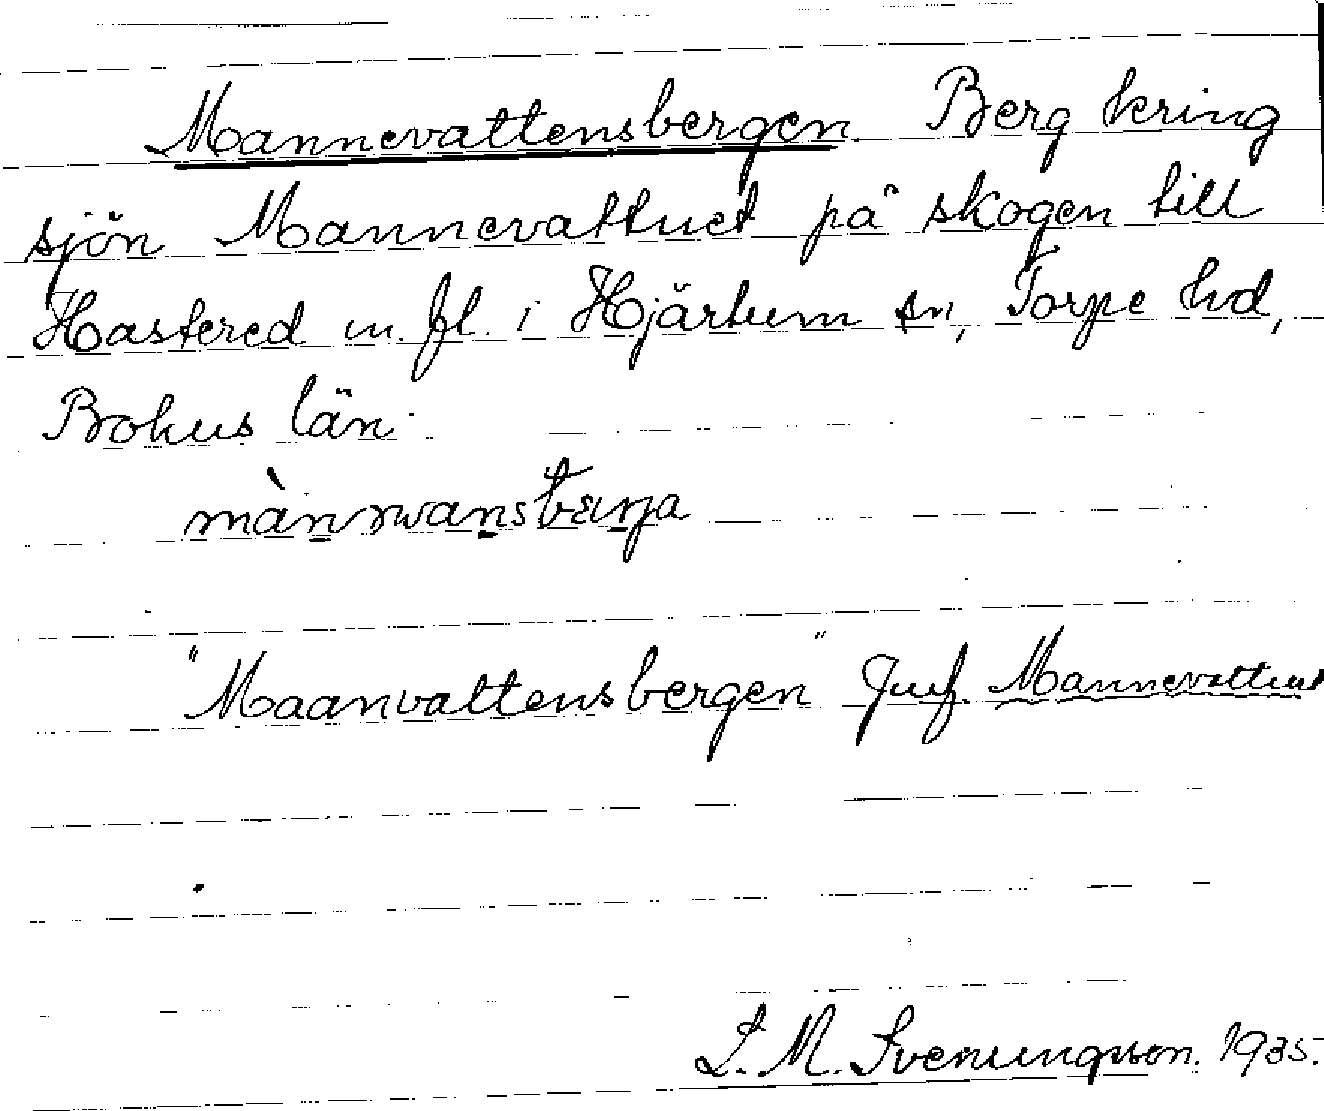 Mannevattensbergen. Berg kring
sjön Mannevattnet på skogen till
Hastered m. fl. i Hjärtum sn, Torpe hd,
Bohus län.
"Maanvattensbergen" Jmf. Mannevattnet
S. M. Svenungsson. 1935.